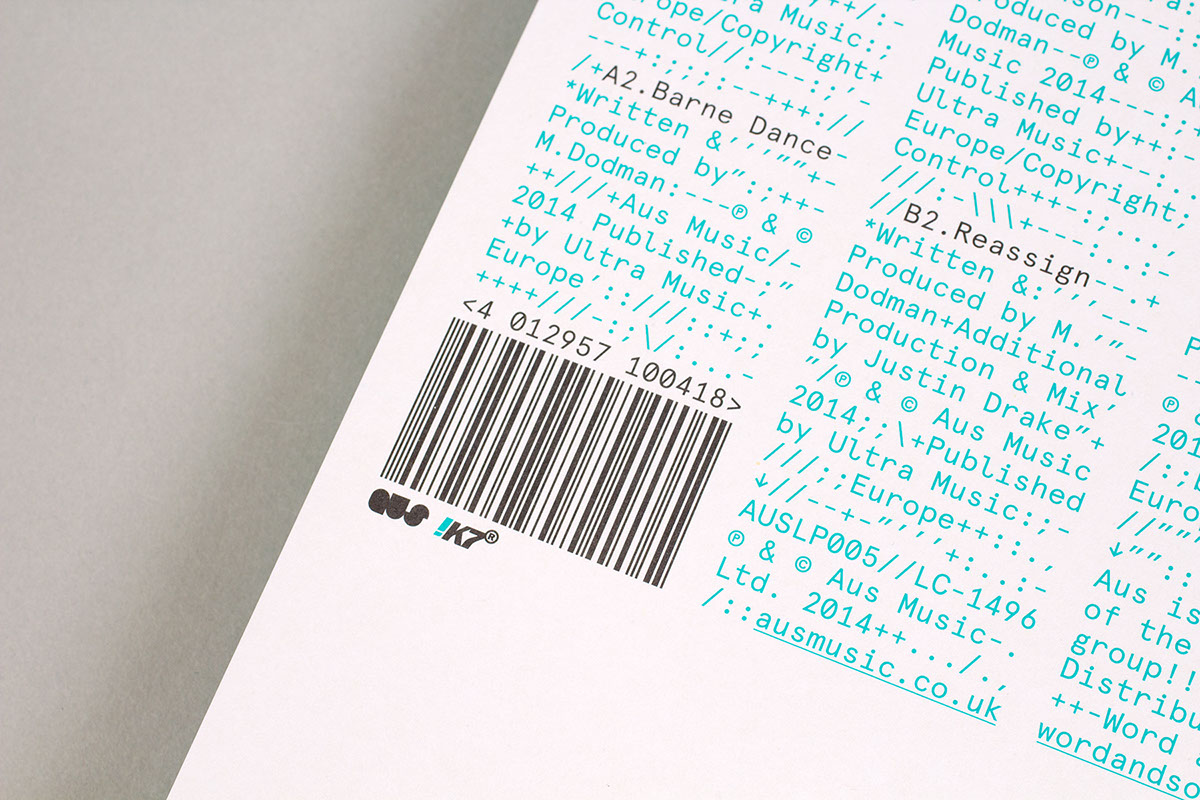 y++/:-
ra Music:;
ope/Copyright+
Control//:---:;,-
----+:;:;:--+++://
/+A2.Barne Dance-
*Written &’’’””+-
Produced by”:;++-
M.Dodman:---℗ & ©
++///+Aus Music/-
2014 Published-;”
+by Ultra Music+.
Europe’:://///::+;;
++++///-:;\/:...-
<4 012957 100418>
aus !K7®
son---:
oduced by M.
Dodman--℗ & © A
Music 2014---:;
Published by++:-
Ultra Music+--:.
Europe/Copyright;
Control+++-:;..,
///:-\\\+---:..:-
//B2.Reassign--.+
*Written &:’’,---
Produced by M.’”-
Dodman+Additional
Production & Mix’
by Justin Drake”+
”/℗ & © Aus Music
2014;;\+Published
by Ultra Music:;-
///;;Europe++::.,
↓//--+-”’’+:..:-
AUSLP005//LC-1496
℗ & © Aus Music-.
Ltd. 2014++.../.,
/::ausmusic.co.uk
P
--
℗
201
/:;b
Europ
//”””
↓””::
Aus is
of the
group!!
Distribu
++-Word
wordandso